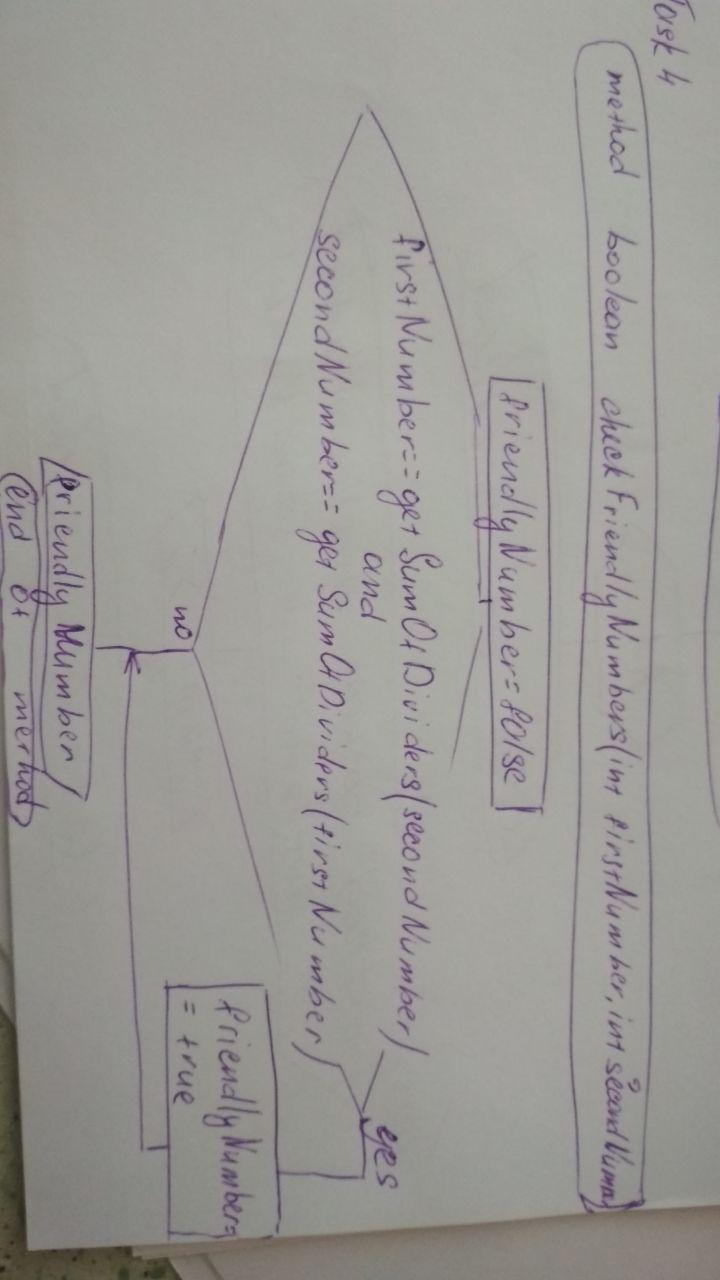 Task 4
method boolean checkFriendlyNumbers(int firstNumber, int secondNumber)
friendlyNumber=false
firstNumber==getSumOfDividers(secondNumber)
and
secondNumber==getSumOfDividers(firstNumber)
yes
no
friendlyNumber=
= true
friendlyNumber
end of method